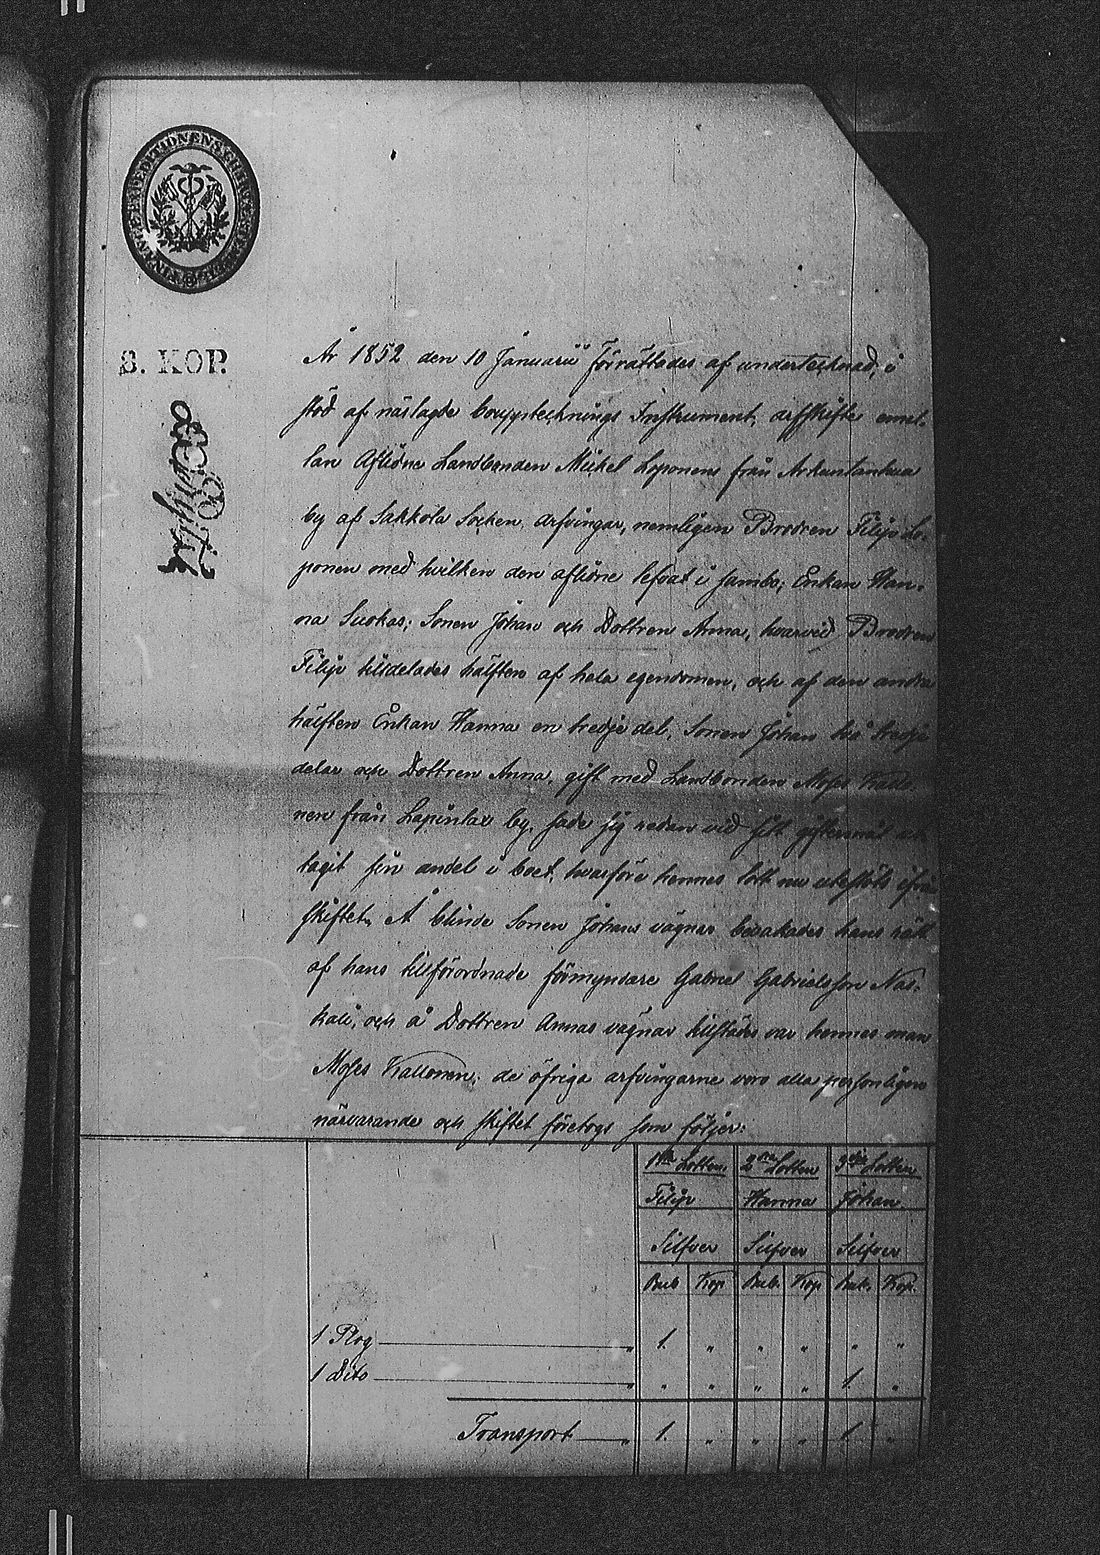 S. KOP.
År 1852 den 10 Januarii förrättades af undertecknad, i
stöd af närlagde boupptecknings Instrument, arfskifte emel-
lan Aflidne Landbonden Mickel Loponens från Arkuntanhua
by af Sakkola Socken, arfvingar, nemligen Brodren Filip Lo-
ponen med hvilken den aflidne lefvat i sambo; Enkan Han-
na Suokas; Sonen Johan och Dottren Anna, hvarvid Brodren
Filip tilldelades hälften af hela egendomen, och af den andra
hälften Enkan Hanna en tredje del, Sonen Johan två tredje
delar och Dottren Anna, gift med Landbonden Moses Kallo-
nen från Lapinlax by, hade sig redan vid sitt giftermål
tagit sin andel i boet, hvarföre hennes lott nu uteslöts ifrån
skiftet. Å blinde Sonen Johans vägnar bevakades hans rätt
af hans tillförordnade förmyndare Gabriel Gabrielsson Nas-
kali, och å Dottren Annas vägnar tillstädes var hennes man
Moses Kallonen; de öfriga arfvingarne voro alla personligen
närvarande och skiftet företogs som följer:
1sta Lotten 2dra Lotten 3dje Lotten
Filip Hanna Johan
Silfver Silfver Silfver
Rub. Kop. Rub. Kop. Rub. Kop.
1 Plog " 1. " " " " "
1 Dito " " " " " 1. "
Transport " 1. " " " 1. "